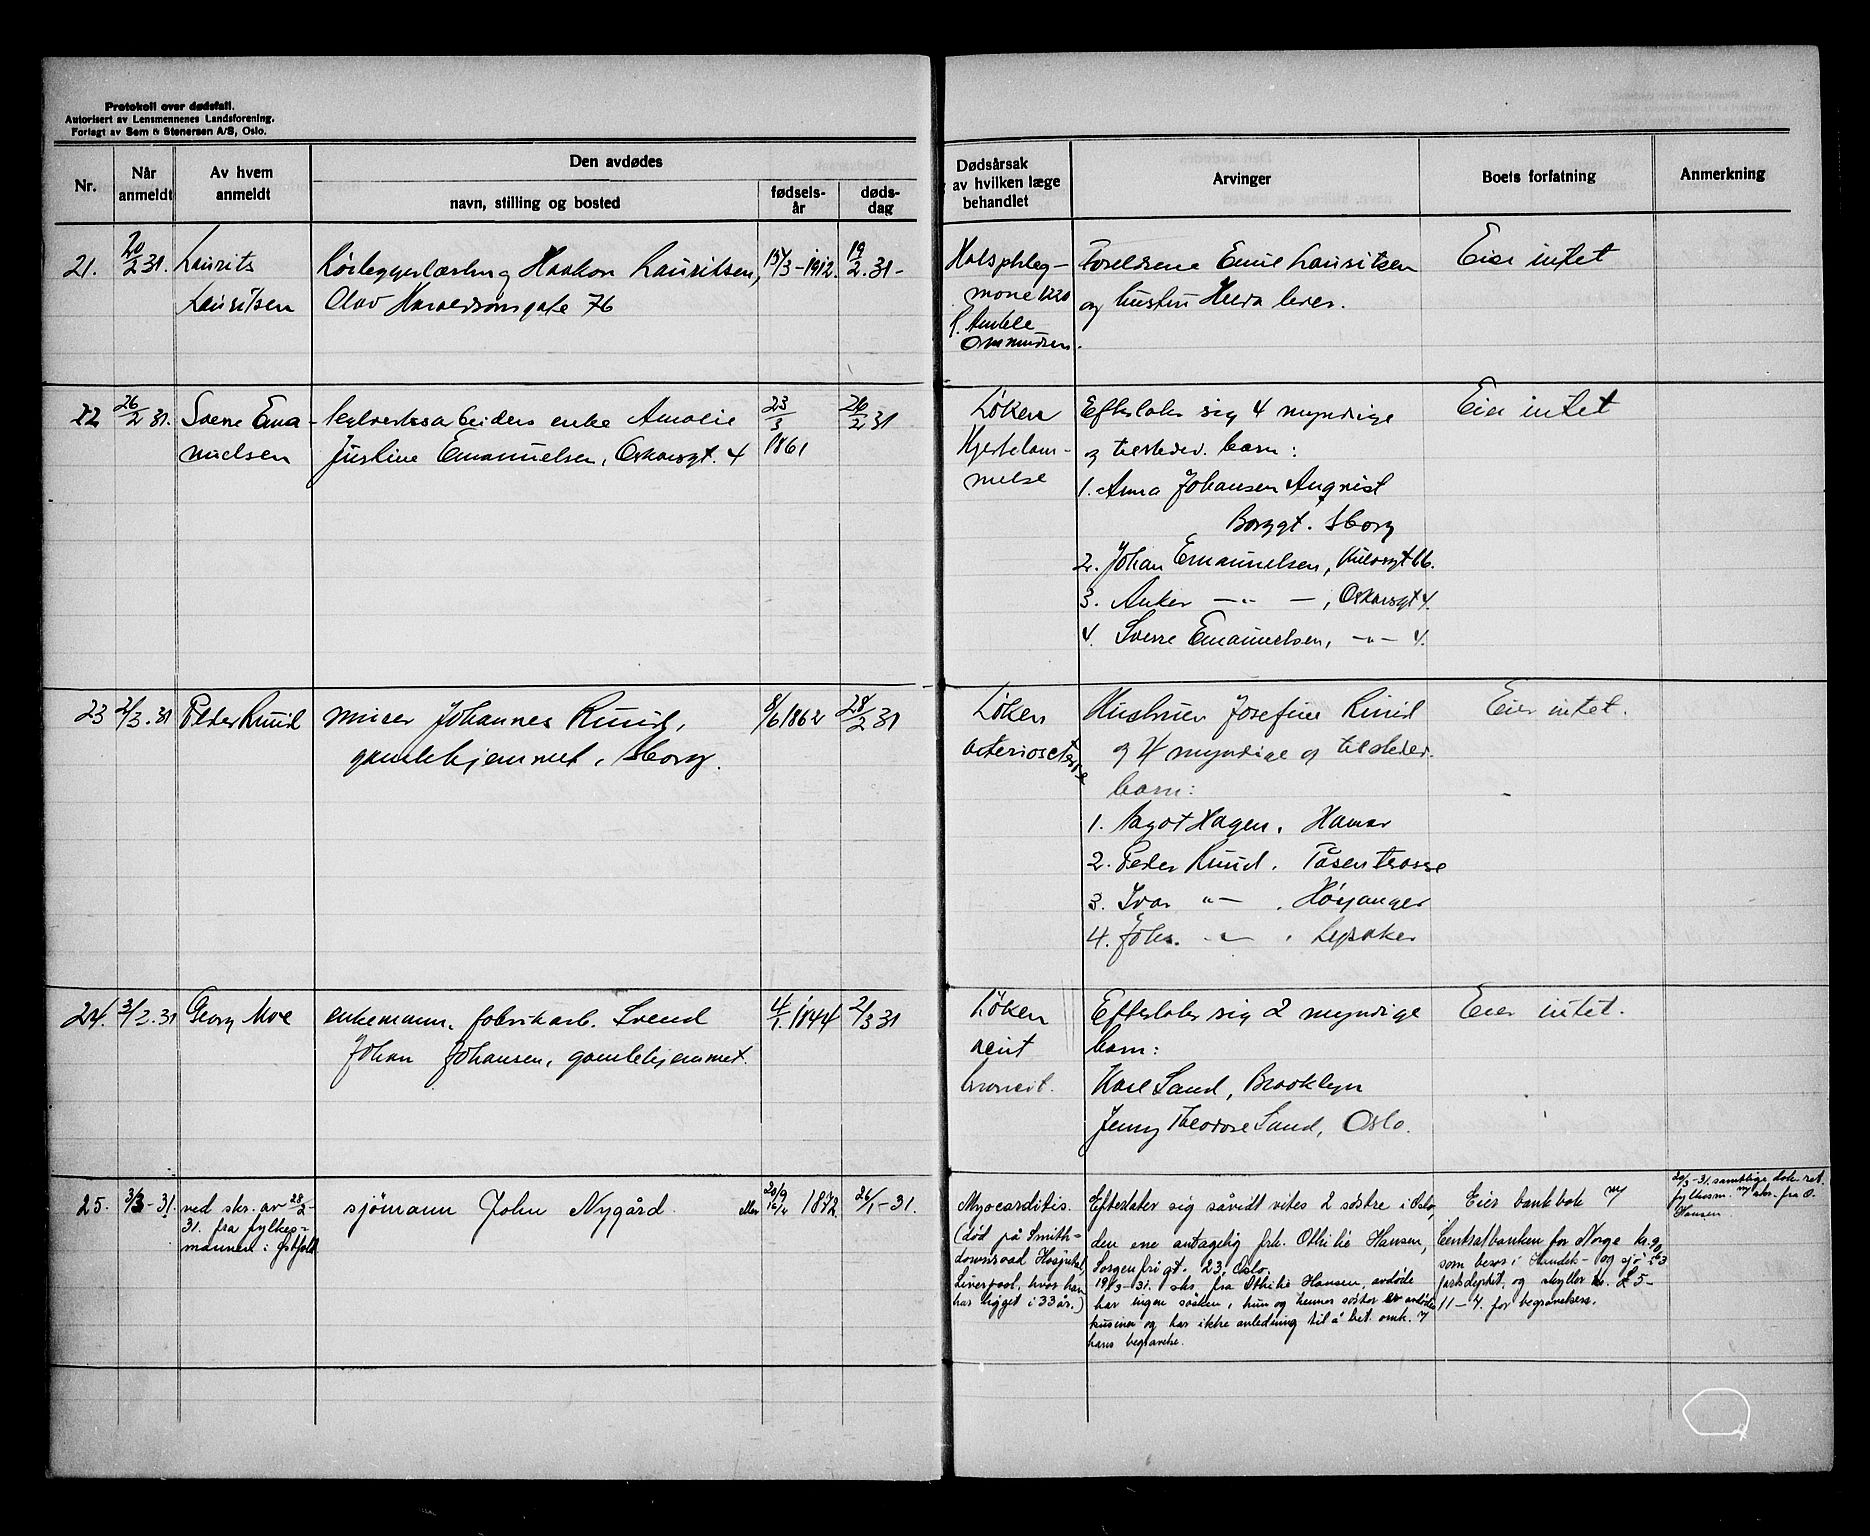 Protokoll over dødsfall.
Autorisert av Lensmennenes Landsforening.
Forlagt av Sem & Stenersen A/S, Oslo.
Nr.
Når anmeldt
Av hvem anmeldt
Den avdødes
navn, stilling og bosted
fødsels-år
døds-dag
Dødsårsak
av hvilken læge
behandlet
Arvinger
Boets forfatning
Anmerkning
21.
20/2 31.
Laurits
Lauritsen
Haakon Lauritsen,
Olav Haraldsonsgate 76
15/3-1912.
19/2.31-
Halsphleg-
mone
Foreldrene Emil Lauritsen
og hustru lever.
Eier intet
22
26/2 31.
Sverre Ema-
nuelsen
enke Amalie
Justine Emanuelsen, Oskarsgt. 4
23/3
1861
26/2 31
Løken
Hjertelam-
melse
Efterlater sig 4 myndige
og tilstedev. barn:
1. Anna Johansen Anqvist
Borggt. Sborg
2. Johan Emanuelsen,
3. Anker —"— , Oskarsgt 4.
4. Sverre Emanuelsen, —"— 4.
Eier intet
23
2/3.31
Peder Ruud
murer Johannes Ruud,
gamlehjemmet, Sborg.
6/6 1862
28/2 31
Løken
Hustruen Josefine Ruud
og 4 myndige og tilstedev.
barn:
1. Dagot Hagen, Hamar
2. Peder Ruud, Tåsen terasse
3. Ivar "— , Høyanger
4. Johs. —"— , Lysaker
Eier intet.
24.
3/3.31
Georg Moe
enkemann, fabrikarb. Svend
Johan Johansen, gamlehjemmet.
4/1 1844
2/3 31
Løken
acut
bronchit.
Efterlater sig 2 myndige
barn:
Karl Sand, Brooklyn
Jenny Theodore Sand, Oslo.
Eier intet.
25.
3/3-31.
ved skr. av 28/2-
31. fra fylkes-
mannen i Østfold
sjømann John Nygård.
1872.
26/1-31.
Myocarditis.
(død på Smith-
downroad Hospital,
Liverpool, hvor han
har ligget i 33 år.)
Efterlater sig såvidt vites 2 søstre i Oslo,
den ene antagelig frk. Othilie Hansen,
Sorgenfrigt. 23, Oslo.
19/3-31. skr. fra Othilie Hansen, avdøde
har ingen søsken, hun og hennes søster er avdødes
kusiner og har ikke anledning til å bet. omk. v/
hans begravelse.
Eier bankbok v/
Centralbanken for Norge kr. 90.63
som beror i Handels- og sjø-
fartsdeptet, og skylder £ 5-
11-4. for begravelsen.
20/3-31. samtlige dok. ret.
fylkesm. m/ skr. fra O.
Hansen.